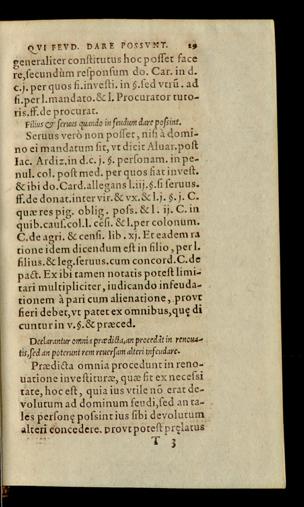 QVI FEVD. DARE POSSVNT. 19
generaliter constitutus hoc posset face
re, secundùm responsum do. Car. in d.
c.j. per quos fi. inuesti. in §. sed vtrū. ad
fi. per l. mandato. & l. Procurator tuto-
ris. ff. de procurat.
Filius & seruus quando in feudum dare possint.
Seruus verò non posset, nisi à domi-
no ei mandatum sit, vt dicit Aluar. post
Iac. Ardiz. in d. c. j. §. personam. in pe-
nul. col. post med. per quos fiat inuest.
& ibi do. Card. allegans l. iij. §. si seruus.
ff. de donat. inter vir. & vx. & l. j. §. j. C.
quæ res pig. oblig. poss. & l. ij. C. in
quib. caus. col. l. cēsi. & l. per colonum.
C. de agri. & censi. lib. xj. Et eadem ra
tione idem dicendum est in filio, per l.
filius. & leg. seruus. cum concord. C. de
pact. Ex ibi tamen notatis potest limi-
tari multipliciter, iudicando infeuda-
tionem à pari cum alienatione, provt
fieri debet, vt patet ex omnibus, quę di
cuntur in v. §. & præced.
Declarantur omnia prædicta, an procedāt in renoua-
tis, sed an poterunt rem reuersam alteri infeudare.
Prædicta omnia procedunt in reno-
uatione inuestituræ, quæ fit ex necessi
tate, hoc est, quia ius vtile nō erat de-
volutum ad dominum feudi, sed an ta-
les personę possint ius sibi devolutum
alteri concedere, provt potest prelatus
T 3